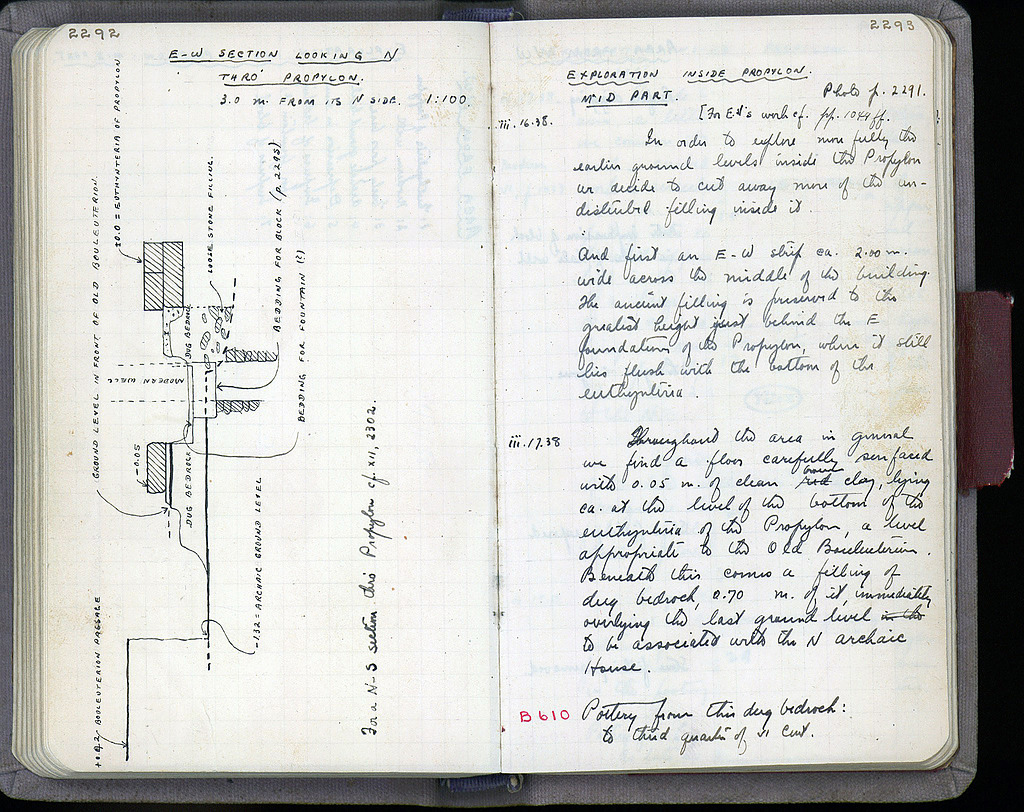 2292
E-W SECTION LOOKING N
THRO' PROPYLON.
3.0 M. FROM ITS N SIDE. 1:100.
±0.0 = EUTHYNTERIA OF PROPYLON
GROUND LEVEL IN FRONT OF OLD BOULEUTERION.
LOOSE STONE FILLING.
BEDDING FOR BLOCK (p. 2295)
BEDDING FOR FOUNTAIN (?)
DUG BEDRK
MODERN WALL
-0.05
DUG BEDROCK
-1.32 = ARCHAIC GROUND LEVEL
BOULEUTERION PASSAGE
For a N-S section thro' Propylon cf. XII, 2302.
2293
EXPLORATION INSIDE PROPYLON.
MID PART.
Photo p. 2291.
[For E's work cf. pp. 1044 ff.
iii.16.38.
In order to explore more fully the
earlier ground levels inside the Propylon
we decide to cut away more of the un-
disturbed filling inside it.
And first an E-W strip ca. 2.00 m.
wide across the middle of the building.
The ancient filling is preserved to the
greatest height just behind the E
foundation of the Propylon, where it still
lies flush with the bottom of the
euthynteria.
iii.17.38
Throughout the area in general
we find a floor carefully surfaced
with 0.05 m. of clean red brown clay, lying
ca. at the level of the bottom of the
euthynteria of the Propylon, a level
appropriate to the Old Bouleuterion.
Beneath this comes a filling of
dug bedrock, 0.70 m. of it, immediately
overlying the last ground level in the
to be associated with the N archaic
House.
B 610 Pottery from this dug bedrock:
to third quarter of VI Cent.